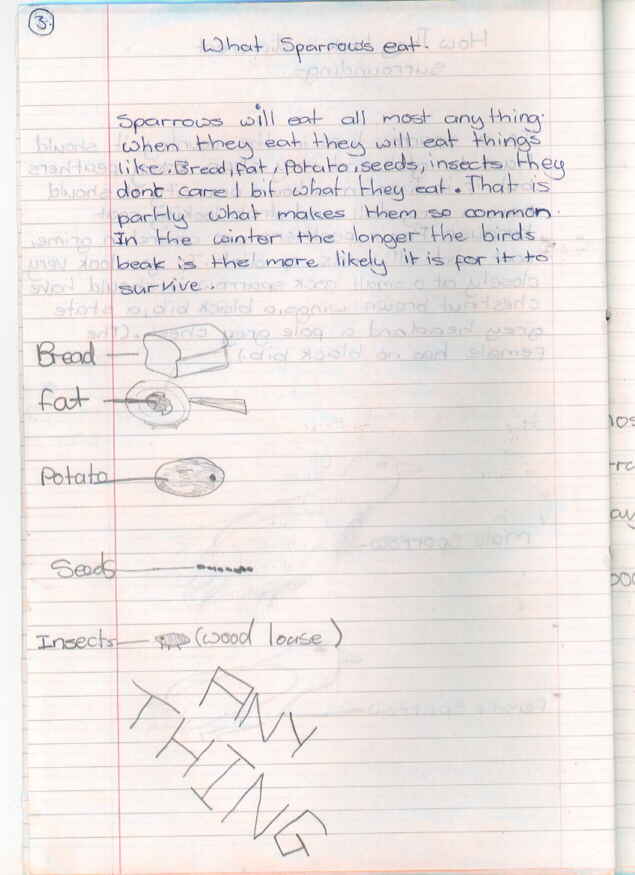 3.
What Sparrows eat.
Sparrows will eat all most any thing.
When they eat they will eat things
like. Bread, fat, Potato, seeds, insects, they
dont care 1 bit what they eat. That is
partly what makes them so common.
In the winter the longer the birds
beak is the more likely it is for it to
survive.
Bread
fat
Potato
Seeds
Insects (wood louse)
ANY
THING